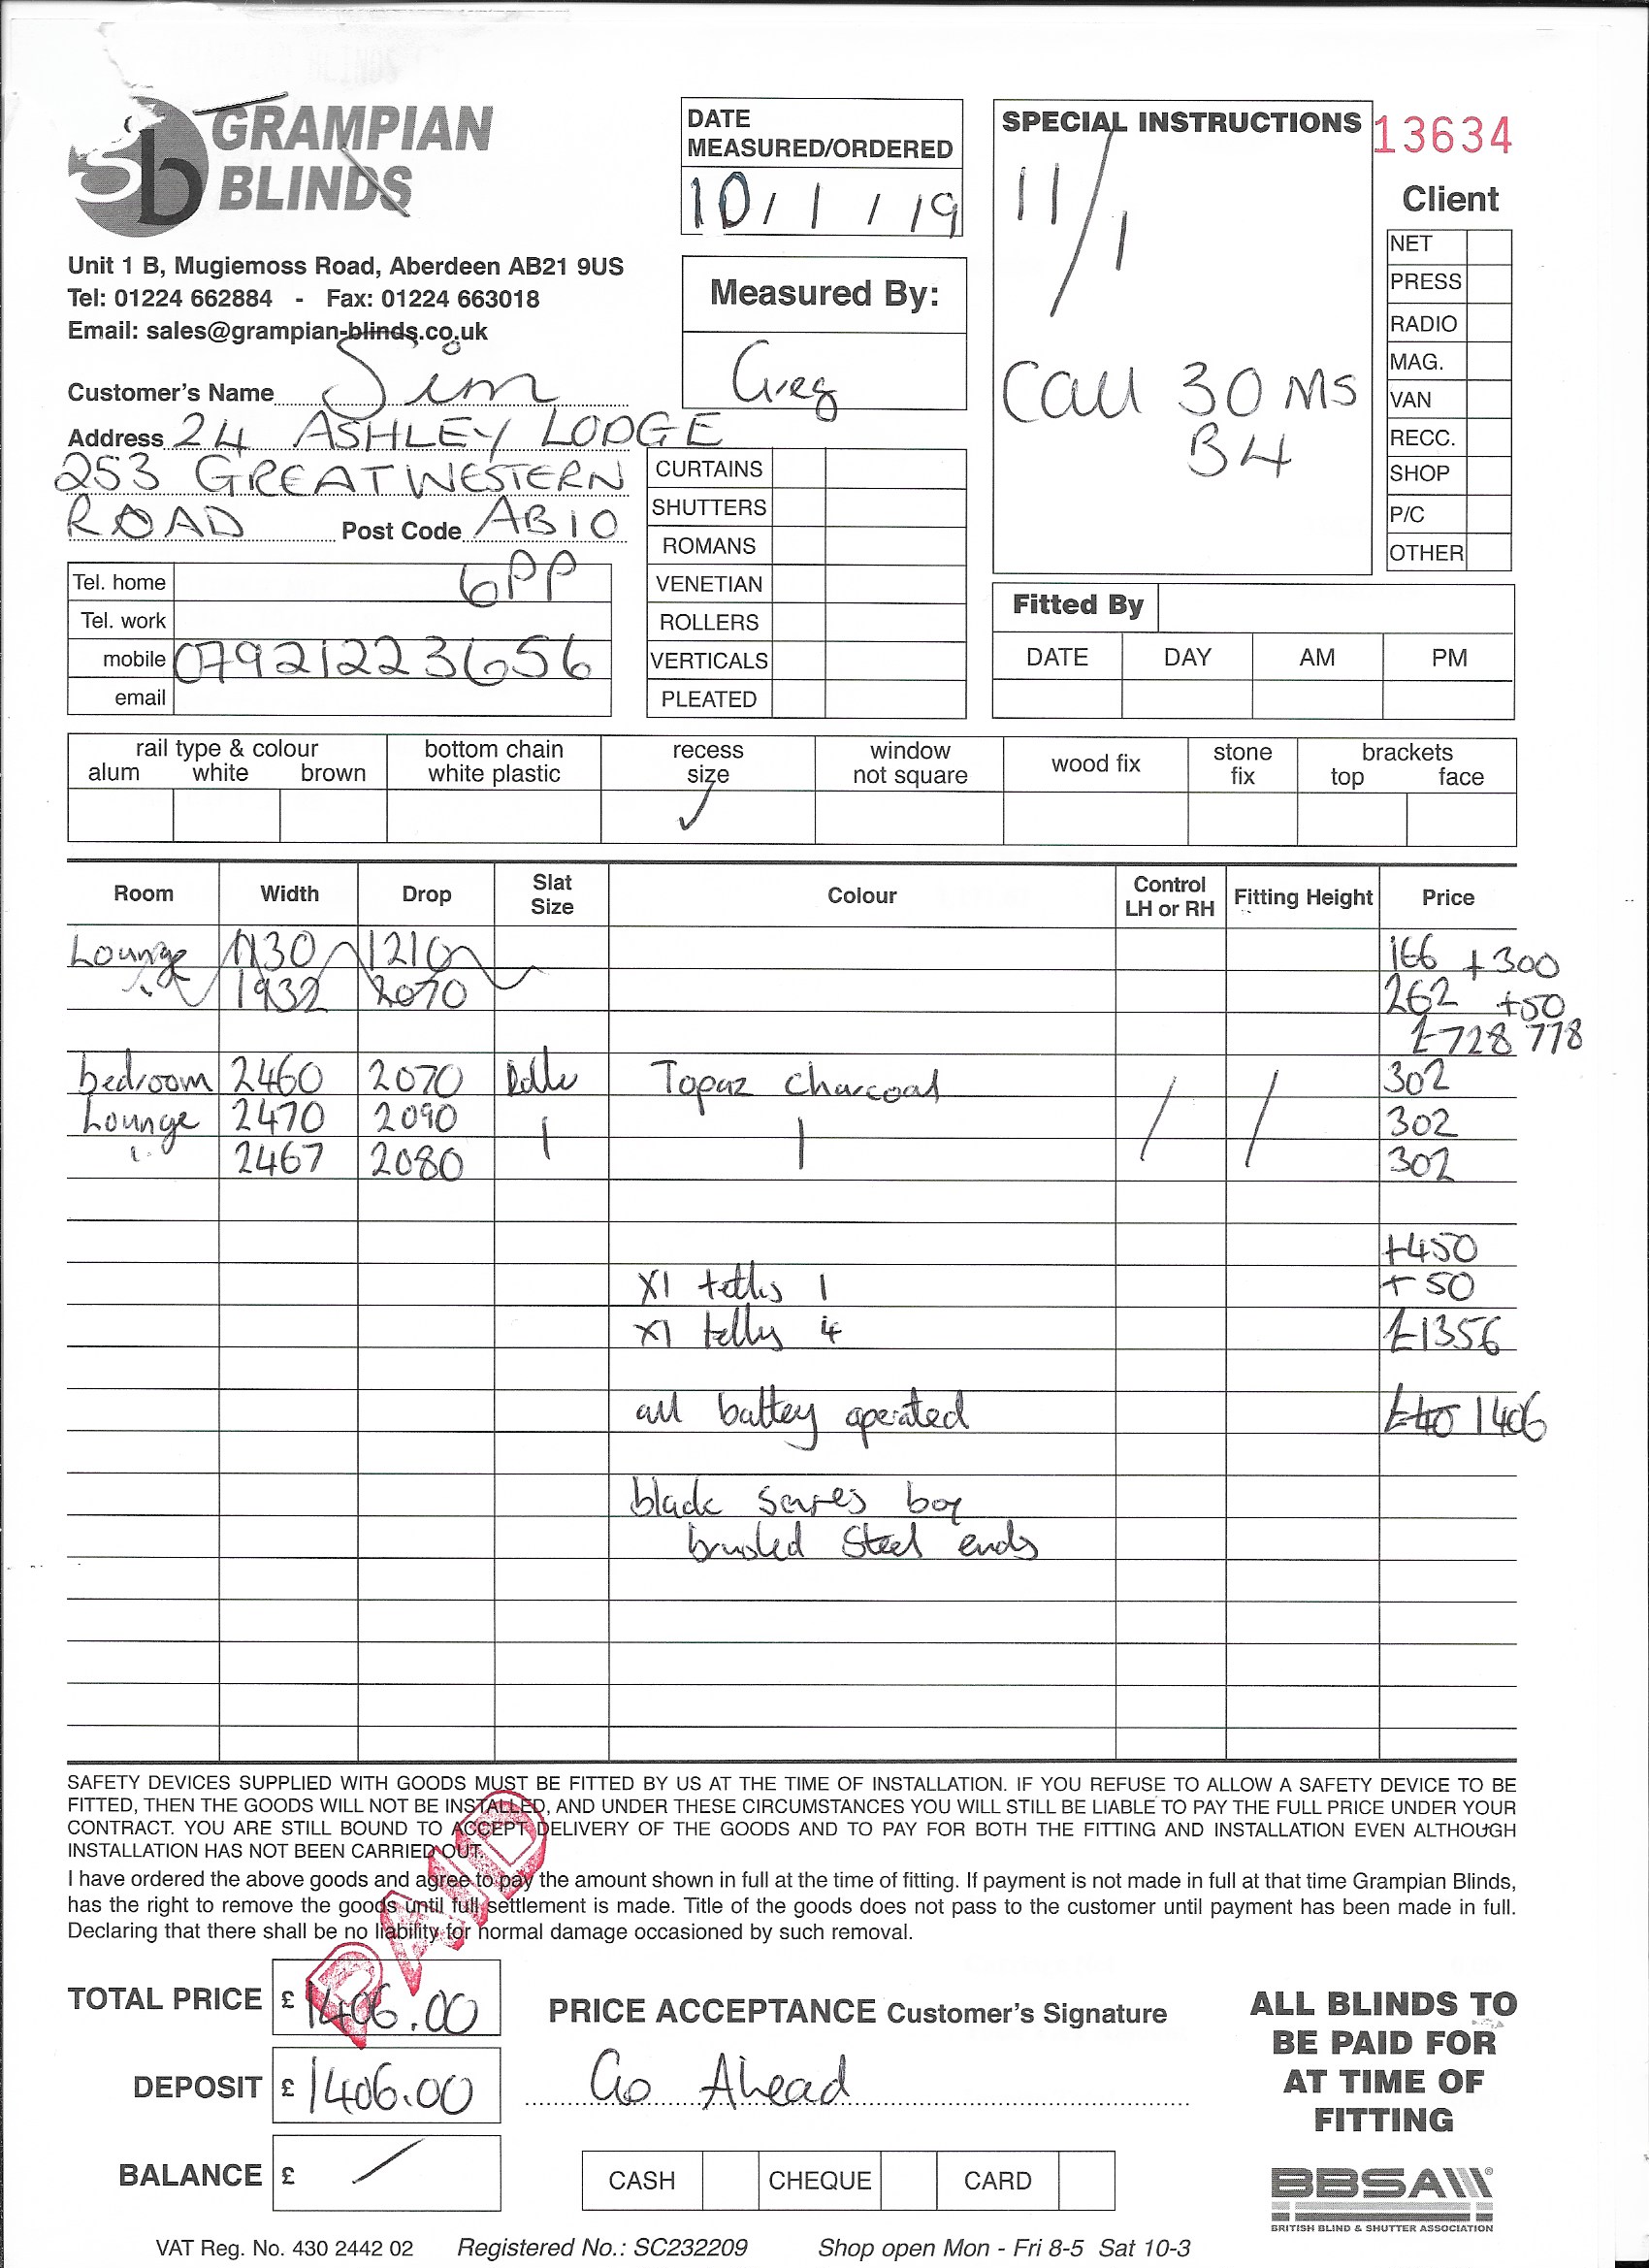 GRAMPIAN
BLINDS
Unit 1 B, Mugiemoss Road, Aberdeen AB21 9US
Tel: 01224 662884 - Fax: 01224 663018
Email: sales@grampian-blinds.co.uk
Customer's Name Sim
Address 24 ASHLEY LODGE
253 GREAT WESTERN
ROAD Post Code AB10
6PP
Tel. home
Tel. work
mobile 07921223656
email
DATE
MEASURED/ORDERED
10/1/19
Measured By:
Greg
CURTAINS
SHUTTERS
ROMANS
VENETIAN
ROLLERS
VERTICALS
PLEATED
SPECIAL INSTRUCTIONS
11/1
Call 30 MS
B4
13634
Client
NET
PRESS
RADIO
MAG.
VAN
RECC.
SHOP
P/C
OTHER
Fitted By
DATE DAY AM PM
rail type & colour
alum white brown
bottom chain
white plastic
recess
size
window
not square
wood fix
stone
fix
brackets
top face
✓
Room Width Drop Slat Size Colour Control LH or RH Fitting Height Price
Lounge 1130 1210 166 +300
1932 2070 262 +50
£728 778
bedroom 2460 2070 Topaz Charcoal 302
Lounge 2470 2090 302
2467 2080 302
+450
X1 1 +50
X1 4 £1356
all battey operated £40 1406
box
Steel ends
SAFETY DEVICES SUPPLIED WITH GOODS MUST BE FITTED BY US AT THE TIME OF INSTALLATION. IF YOU REFUSE TO ALLOW A SAFETY DEVICE TO BE
FITTED, THEN THE GOODS WILL NOT BE INSTALLED, AND UNDER THESE CIRCUMSTANCES YOU WILL STILL BE LIABLE TO PAY THE FULL PRICE UNDER YOUR
CONTRACT. YOU ARE STILL BOUND TO ACCEPT DELIVERY OF THE GOODS AND TO PAY FOR BOTH THE FITTING AND INSTALLATION EVEN ALTHOUGH
INSTALLATION HAS NOT BEEN CARRIED OUT.
I have ordered the above goods and agree to pay the amount shown in full at the time of fitting. If payment is not made in full at that time Grampian Blinds,
has the right to remove the goods until full settlement is made. Title of the goods does not pass to the customer until payment has been made in full.
Declaring that there shall be no liability for normal damage occasioned by such removal.
PAID
TOTAL PRICE £ 1406.00
DEPOSIT £ 1406.00
BALANCE £ /
PRICE ACCEPTANCE Customer's Signature
Go Ahead
CASH CHEQUE CARD
ALL BLINDS TO
BE PAID FOR
AT TIME OF
FITTING
BBSA
BRITISH BLIND & SHUTTER ASSOCIATION
VAT Reg. No. 430 2442 02 Registered No.: SC232209 Shop open Mon - Fri 8-5 Sat 10-3